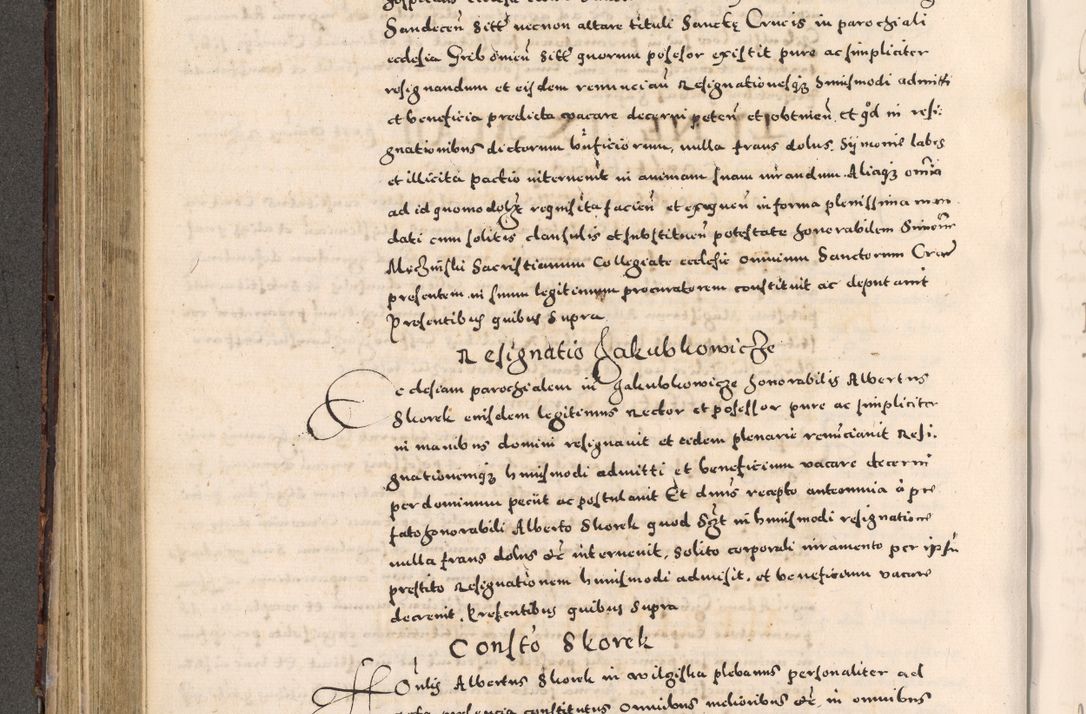 Sandecen sitt necnon altare tituli Sanctę Crucis in parochiali
ecclesia Gribomen sitt quorum possesor existit pure ac simpliciter
resignandum et eisdem renunciañ Resignationesqz huiusmodi admitti
et beneficia predicta vacare decerni peteñ et obtineñ et qd in resi:
gnationibus dictorum bnficiorum, nulla fraus dolus, Symonie labes
et illicita pactio intervenit in animam suam iurandum Aliaqz omia
ad id quomodolzt requisita facieñ et exequeñ in forma plenissima man
dati cum solitis clausulis et substitueñ potestate honorabilem Simonē
Sacristianum Collegiate ecclesie omnium Sanctorum Crac
presentem in suum legitimum procuratorem constituit ac deputavit
Presentibus quibus supra
Resignatio Jakubkowicze
Ecclesiam parochialem in Jakubkowicze honorabilis Albertus
Skorek eiusdem legitimus Rector et possessor pure ac simpliciter
in manibus domini resignavit et eidem plenarie renunciavit Resi:
gnationemqz huiusmodi admitti et beneficium vacare decerni
per dominum petiit ac postulavit Et dnus recepto anteomnia a pre
fato honorabili Alberto Skorek quod szt in huiusmodi resignatione
nulla fraus dolus etc intervenit, solito corporali iuramento per ipsū
prestito Resignationem huiusmodi admisit, et beneficium vacare
decrevit. Presentibus quibus supra
Consto Skorek
Honlis Albertus Skorek in wilgiska plebanus personaliter ad
presencia constitutus omnibus melioribus etc, in omnibus